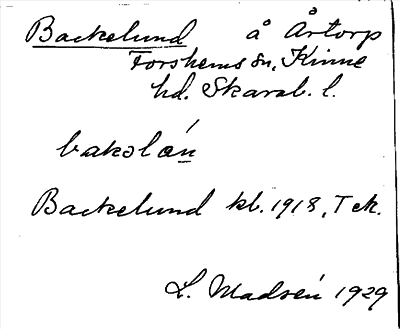 Backelund å Årtorp
Forshems sn, Kinne
hd. Skarab. l.
bakəlǽn
Backelund kl. 1918, T ek.
L. Madsén 1929